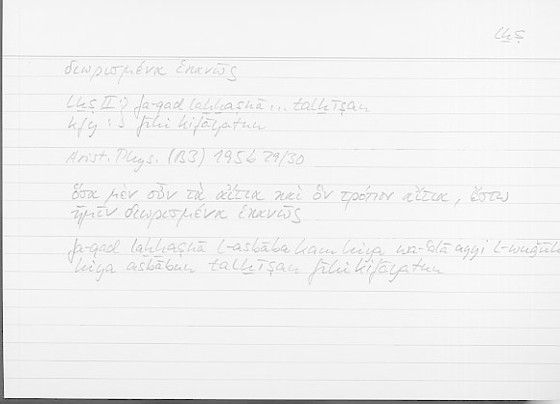 lḫṣ
διωρισμένα ἱκανῶς
lḫṣ II : fa-qad laḫḫaṣnā ... talḫīṣan
kfy : fīhi kifāyatun
Arist. Phys. (B3) 195b 29/30
ὅσα μὲν οὖν τὰ αἴτια καὶ ὃν τρόπον αἴτια, ἔστω
ἡμῖν διωρισμένα ἱκανῶς
fa-qad laḫḫaṣnā l-asbāba kam hiya wa-ʿalā ayyi l-wuǧūhi
hiya asbābun talḫīṣan fīhi kifāyatun